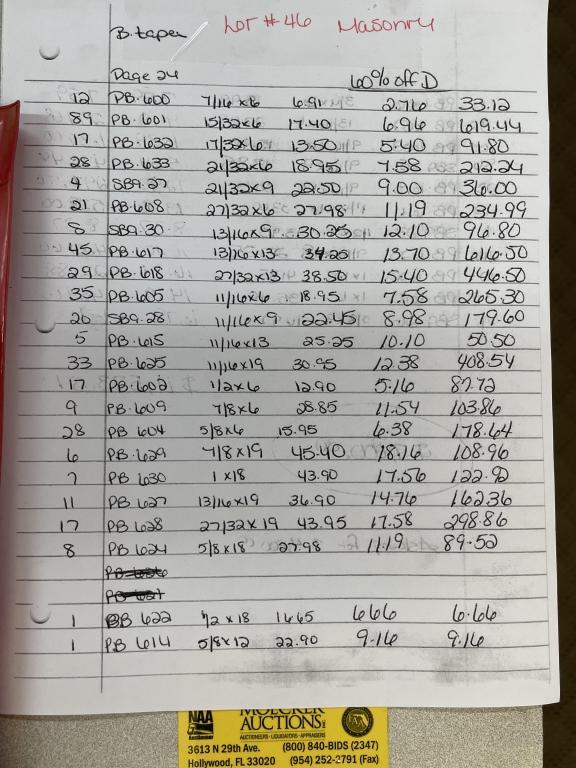 B. taper Lot #46 Masonry
Page 24 60% off D
12 PB.600 7/16 x6 6.91 2.76 33.12
89 PB.601 15/32x6 17.40 6.96 619.44
17 PB.632 17/32x6 13.50 5.40 91.80
28 PB.633 21/32x6 18.95 7.58 212.24
4 SB9.27 21/32x9 22.50 9.00 36.00
21 PB.608 27/32x6 27.98 11.19 234.99
8 SB9.30 13/16x9 30.25 12.10 96.80
45 PB.617 13/16x13 34.25 13.70 616.50
29 PB.618 27/32x13 38.50 15.40 446.50
35 PB.605 11/16x6 18.95 7.58 265.30
20 SB9.28 11/16x9 22.45 8.98 179.60
5 PB.615 11/16x13 25.25 10.10 50.50
33 PB.625 11/16x19 30.95 12.38 408.54
17 PB.602 1/2x6 12.90 5.16 87.72
9 PB.609 7/8x6 28.85 11.54 103.86
28 PB 604 5/8x6 15.95 6.38 178.64
6 PB.629 7/8x19 45.40 18.16 108.96
7 PB 630 1 x18 43.90 17.56 122.92
11 PB 627 13/16x19 36.90 14.76 162.36
17 PB 628 27/32x19 43.95 17.58 298.86
8 PB 624 5/8x18 27.98 11.19 89.52
1 PB 622 1/2 x18 16.65 6.66 6.66
1 PB 614 5/8x12 22.90 9.16 9.16
NAA MOECKER
AUCTIONS INC
AUCTIONEERS • LIQUIDATORS • APPRAISERS
3613 N 29th Ave. (800) 840-BIDS (2347)
Hollywood, FL 33020 (954) 252-2791 (Fax)